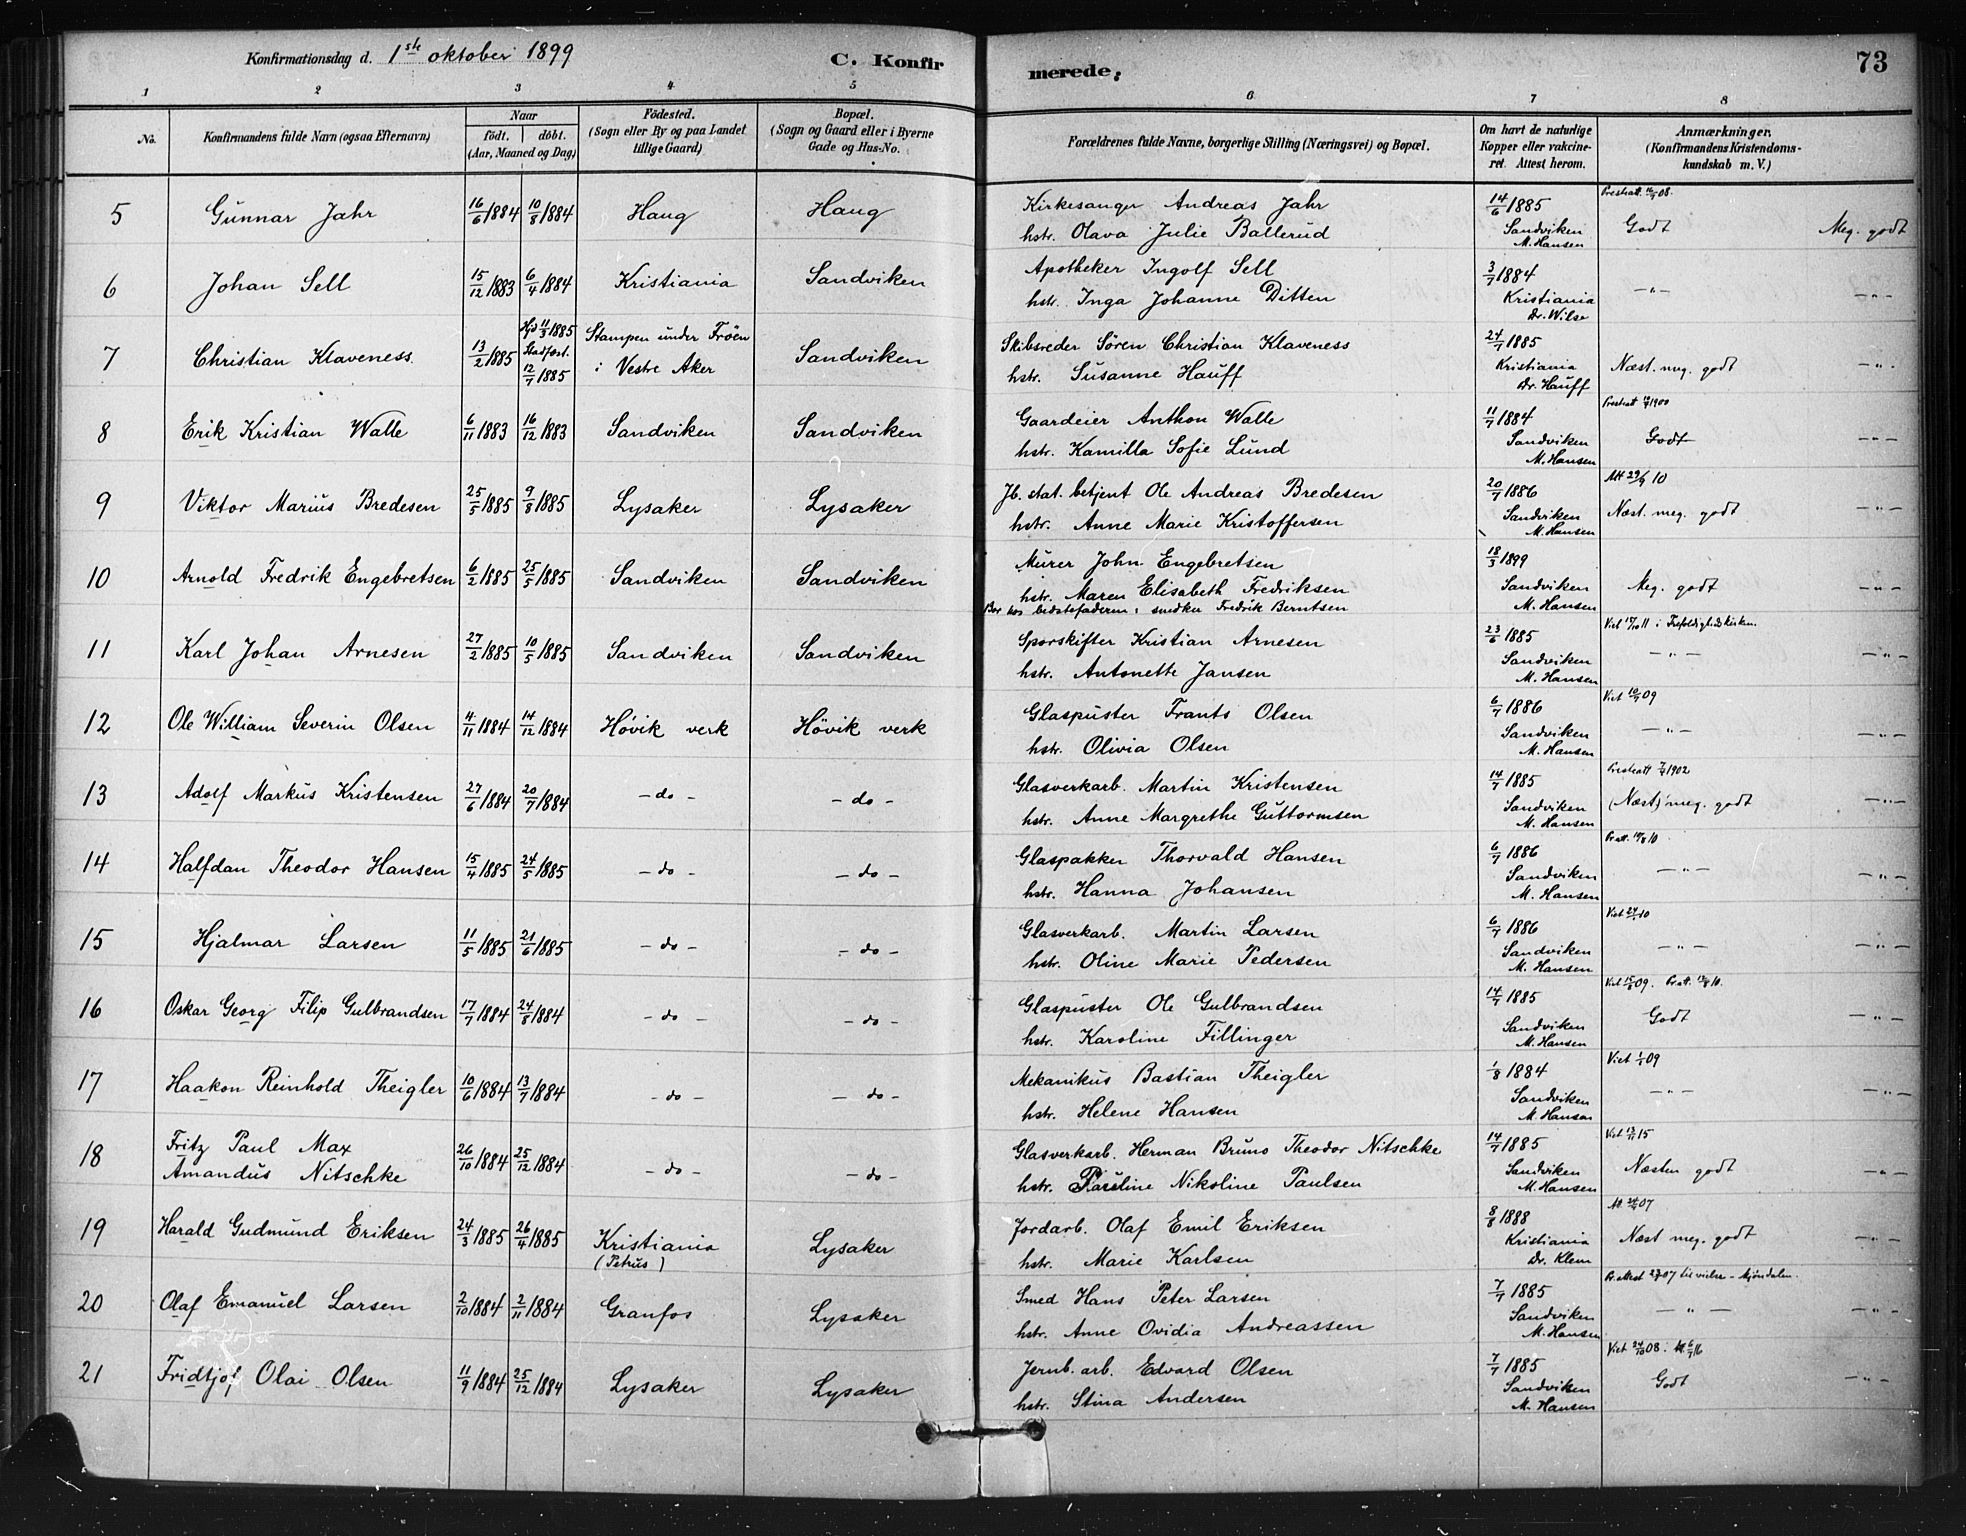 Konfirmationsdag d. 1ste oktober 1899
C. Konfirmerede.
73
1 2 3 4 5 6 7 8
No. Konfirmandens fulde Navn (ogsaa Efternavn) Naar födt. döbt. (Aar, Maaned og Dag) Födested. (Sogn eller By og paa Landet tillige Gaard) Bopæl. (Sogn og Gaard eller i Byerne Gade og Hus-No. Forældrenes fulde Navne, borgerlige Stilling (Næringsvei) og Bopæl. Om havt de naturlige Kopper eller vakcineret. Attest herom. Anmærkninger. (Konfirmandens Kristendomskundskab m. V.)
5 Gunnar Jahr 16/6 1884 10/8 1884 Haug Haug Kirkesanger Andreas Jahr 14/6 1885 Godt Meg. godt
hstr. Olava Julie Ballerud Sandviken M. Hansen
6 Johan Sell 15/12 1883 6/4 1884 Kristiania Sandviken Apotheker Ingolf Sell 3/7 1884 - " - - " -
hstr. Inga Johanne Ditten Kristiania Dr. Wilse
7 Christian Klaveness 13/2 1885 Hjd 11/3 1885 Stadfæst. 12/7 1885 Stampen under Fröen i Vestre Aker Sandviken Skibsreder Sören Christian Klaveness 24/7 1885 Næst. meg. godt - " -
hstr. Susanne Hauff Kristiania Dr. Hauff
8 Erik Kristian Walle 6/11 1883 16/12 1883 Sandviken Sandviken Gaardeier Anthon Walle 11/7 1884 Godt - " -
hstr. Kamilla Sofie Lund Sandviken M. Hansen
9 Viktor Marius Bredesen 25/5 1885 9/8 1885 Lysaker Lysaker Jb. stat. betjent Ole Andreas Bredesen 20/7 1886 Næst. meg. godt - " -
hstr. Anne Marie Kristoffersen Sandviken M. Hansen
10 Arnold Fredrik Engebretsen 6/2 1885 25/5 1885 Sandviken Sandviken Murer John Engebretsen 18/3 1899 Meg. godt - " -
hstr. Maren Elisabeth Fredriksen Sandviken M. Hansen
Bor hos bedstefaderen: snedker Fredrik Berntsen
11 Karl Johan Arnesen 27/2 1885 10/5 1885 Sandviken Sandviken Sporskifter Kristian Arnesen 23/6 1885 Viet 17/10 11 i Trefoldighedskirken. - " - - " -
hstr. Antonette Jansen Sandviken M. Hansen
12 Ole William Severin Olsen 4/11 1884 14/12 1884 Hövik verk Hövik verk Glaspuster Frants Olsen 6/7 1886 - " - - " -
hstr. Olivia Olsen Sandviken M. Hansen
13 Adolf Markus Kristensen 27/6 1884 20/7 1884 - do - - do - Glasverkarb. Martin Kristensen 14/7 1885 (Næst) meg. godt - " -
hstr. Anne Margrethe Guttormsen Sandviken M. Hansen
14 Halfdan Theodor Hansen 15/4 1885 24/5 1885 - do - - do - Glaspakker Thorvald Hansen 6/7 1886 - " - - " -
hstr. Hanna Johansen Sandviken M. Hansen
15 Hjalmar Larsen 11/5 1885 21/6 1885 - do - - do - Glasverkarb. Martin Larsen 6/7 1886 - " - - " -
hstr. Oline Marie Pedersen Sandviken M. Hansen
16 Oskar Georg Filip Gulbrandsen 17/7 1884 24/8 1884 - do - - do - Glaspuster Ole Gulbrandsen 14/7 1885 Godt - " -
hstr. Karoline Fillinger Sandviken M. Hansen
17 Haakon Reinhold Theigler 10/6 1884 13/7 1884 - do - - do - Mekanikus Bastian Theigler 1/8 1884 - " - - " -
hstr. Helene Hansen Sandviken M. Hansen
18 Fritz Paul Max Amandus Nitschke 26/10 1884 25/12 1884 - do - - do - Glasverkarb. Herman Bruno Theodor Nitschke 14/7 1885 Næsten godt - " -
hstr. Pauline Nikoline Paulsen Sandviken M. Hansen
19 Harald Gudmund Eriksen 24/3 1885 26/4 1885 Kristiania (Petrus) Lysaker Jordarb. Olaf Emil Eriksen 8/8 1888 Næst meg. godt - " -
hstr. Marie Karlsen Kristiania Dr. Klem
20 Olaf Emanuel Larsen 2/10 1884 2/11 1884 Granfos Lysaker Smed Hans Peter Larsen 7/7 1885 - " - - " -
hstr. Anne Ovidia Andreassen Sandviken M. Hansen
21 Fridtjof Olai Olsen 11/9 1884 25/12 1884 Lysaker Lysaker Jernb. arb. Edvard Olsen 7/7 1885 Godt - " -
hstr. Stina Andersen Sandviken M. Hansen